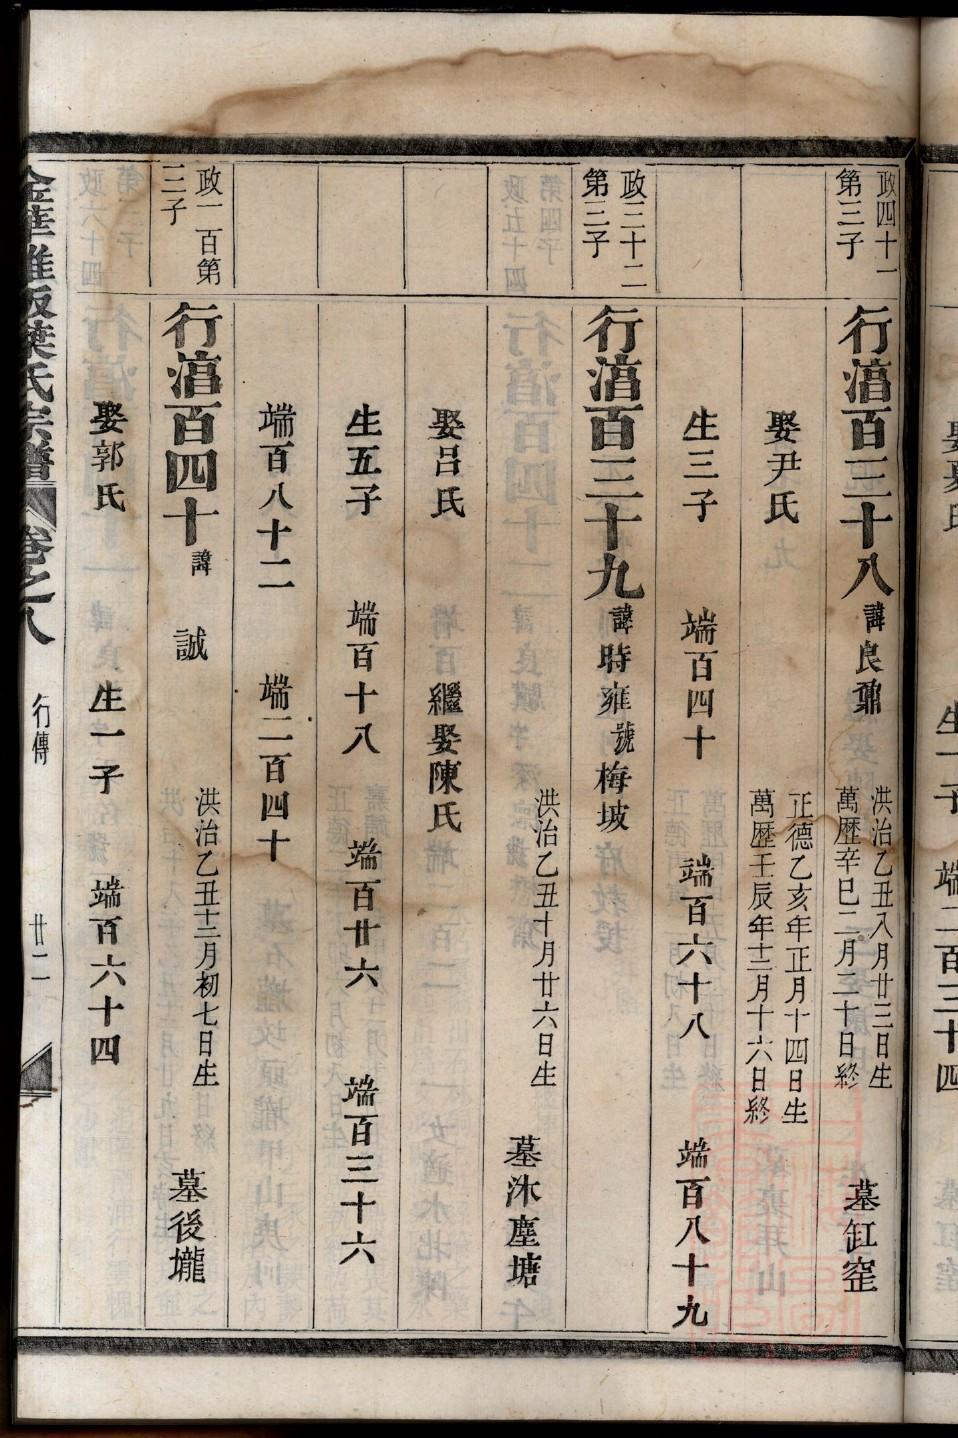 政四十一
第三子
行湻百三十八 諱良鼐
洪治乙丑八月廿三日生
萬歷辛巳二月二十日終
墓缸窑
娶尹氏
正德乙亥年正月十四日生
萬歷壬辰年十二月十六日終
生三子 端百四十 端百六十八 端百八十九
政三十二
第三子
行湻百三十九 諱時雍 號梅坡
洪治乙丑十月廿六日生
墓沐塵塘
娶呂氏 繼娶陳氏
生五子 端百十八 端百廿六 端百三十六
端百八十二 端二百四十
政一百第
三子
行湻百四十 諱誠
洪治乙丑十二月初七日生
墓後壠
娶郭氏 生一子 端百六十四
葉氏宗譜 卷之八 行傳 廿二